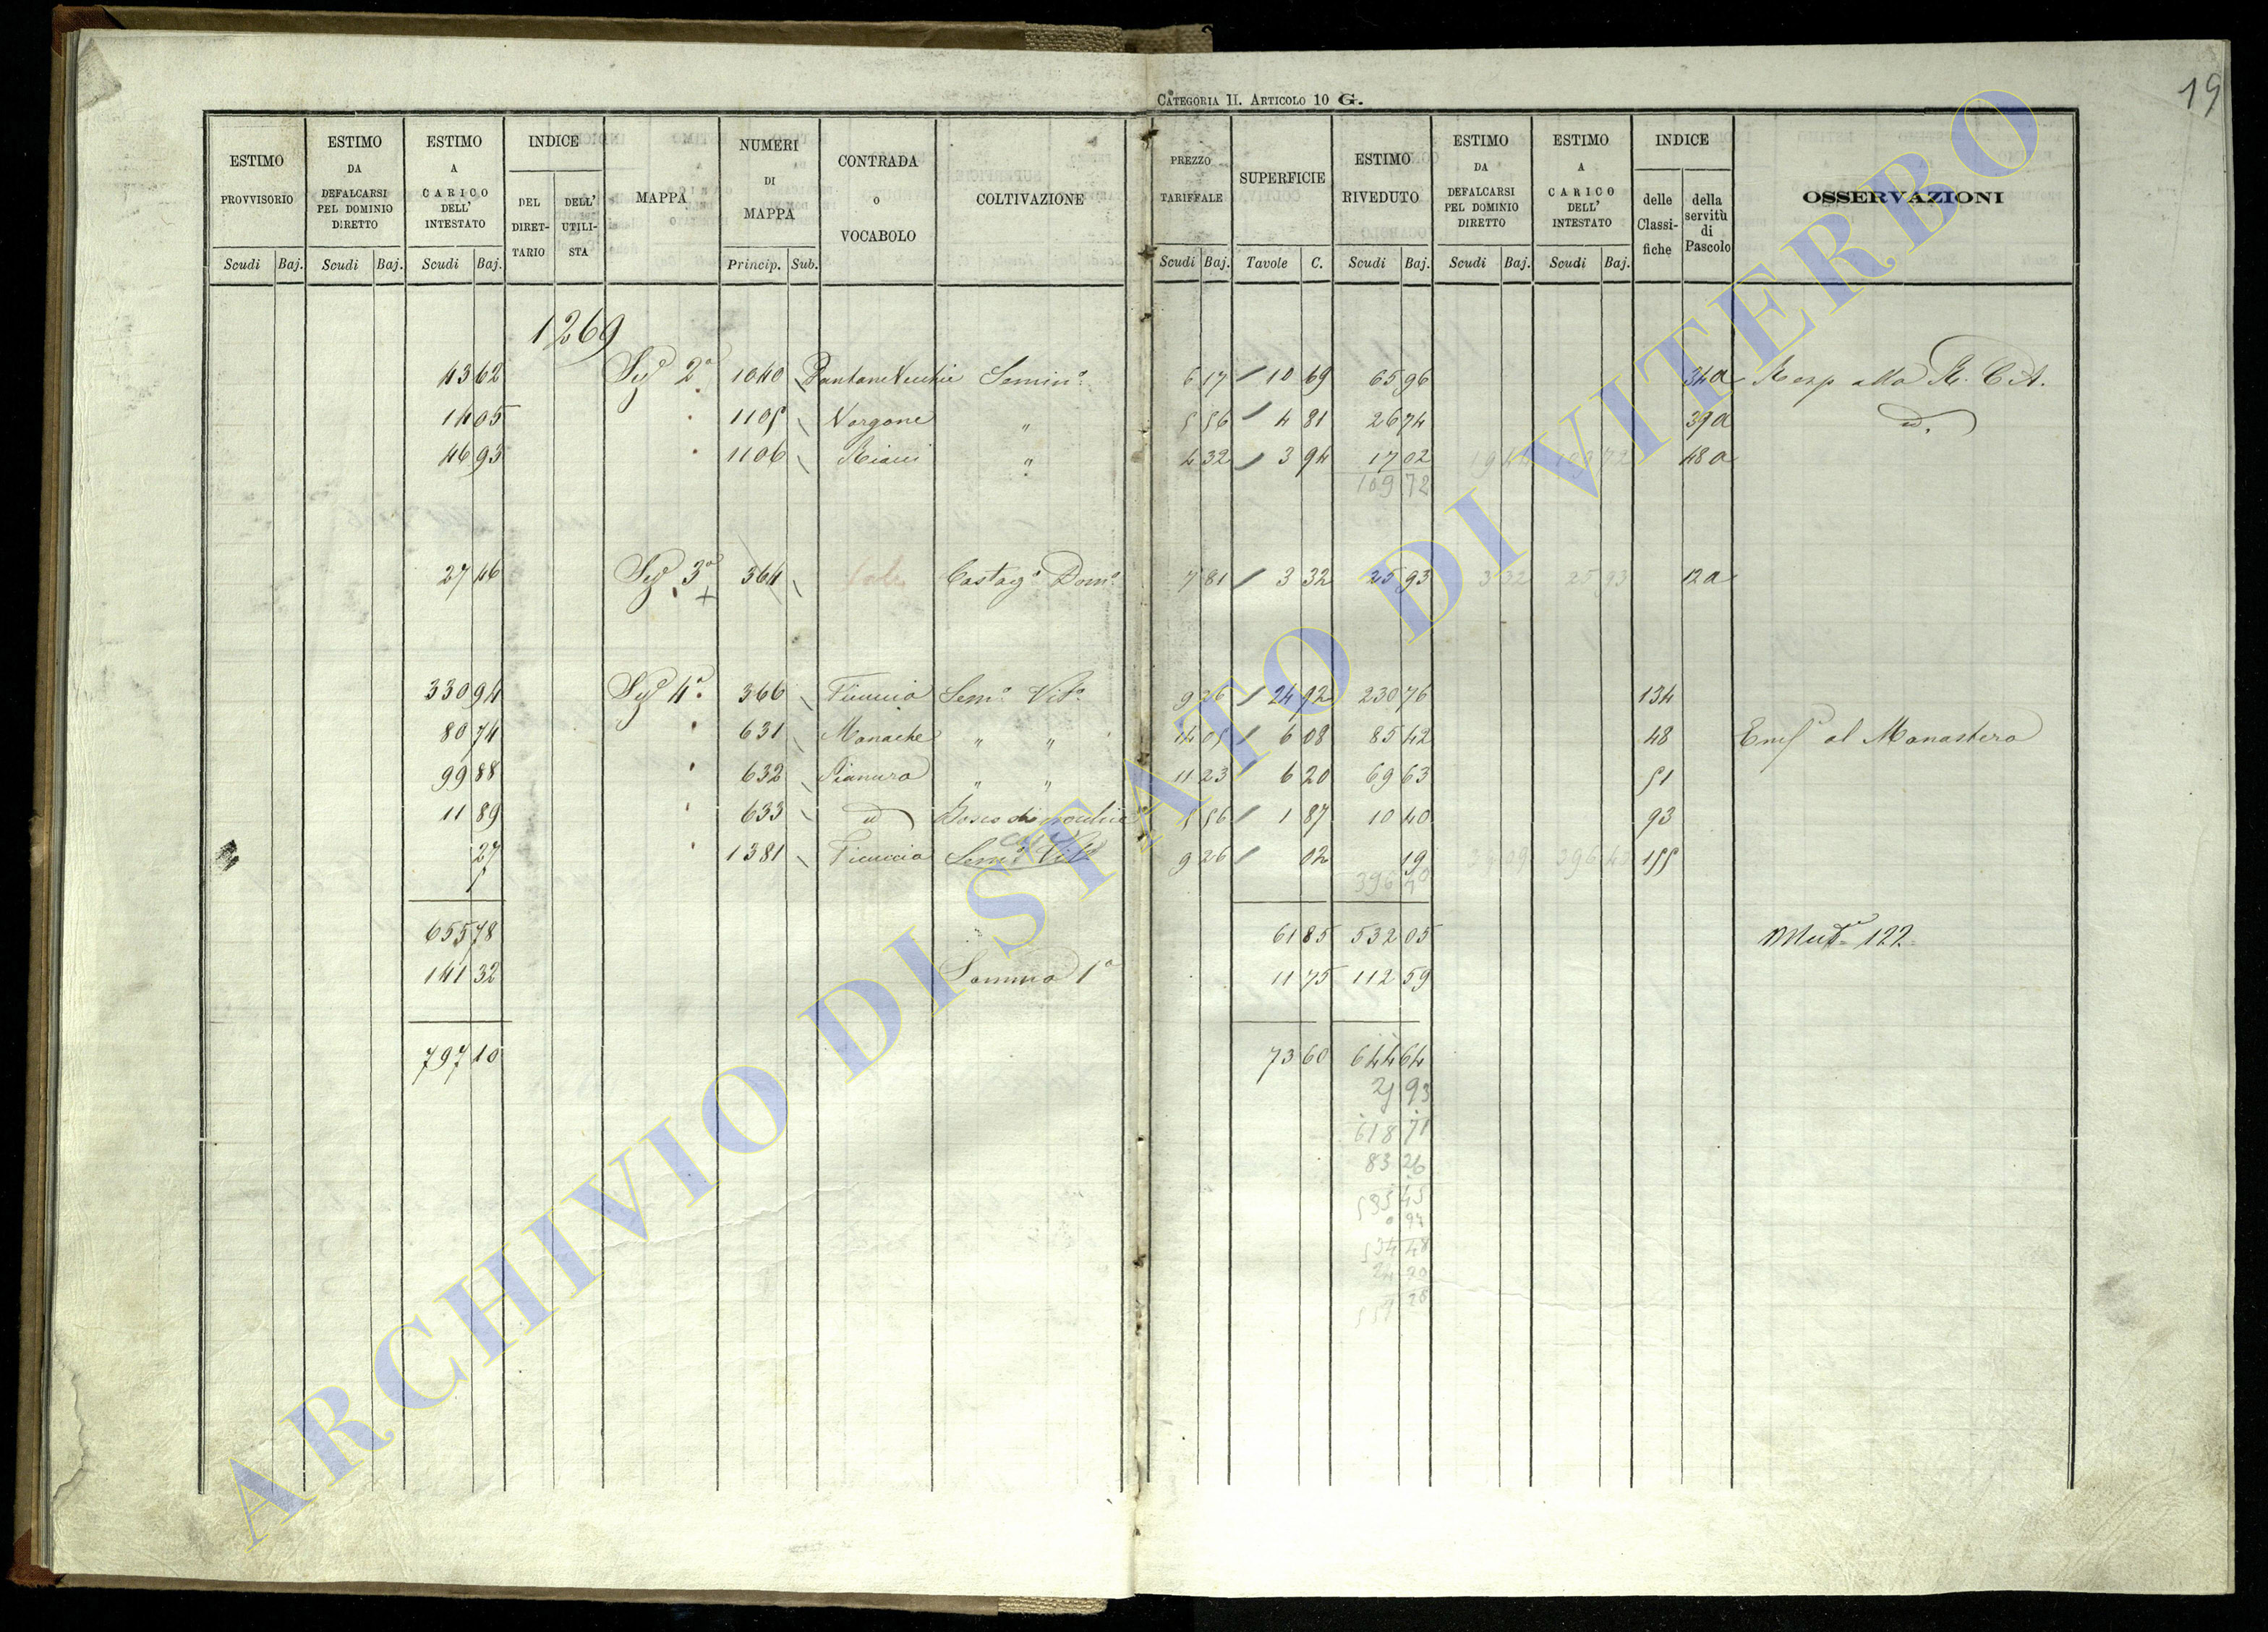 19
CATEGORIA II. ARTICOLO 10 G.
ESTIMO PROVVISORIO | ESTIMO DA DEFALCARSI PEL DOMINIO DIRETTO | ESTIMO A CARICO DELL' INTESTATO | INDICE DEL DIRETTARIO | DELL' UTILISTA | MAPPA | NUMERI DI MAPPA | CONTRADA O VOCABOLO | COLTIVAZIONE | PREZZO TARIFFALE | SUPERFICIE | ESTIMO RIVEDUTO | ESTIMO DA DEFALCARSI PEL DOMINIO DIRETTO | ESTIMO A CARICO DELL' INTESTATO | INDICE delle Classifiche | della servitù di Pascolo | OSSERVAZIONI
Scudi Baj. | Scudi Baj. | Scudi Baj. | Princip. Sub. | Scudi Baj. | Tavole C. | Scudi Baj. | Scudi Baj. | Scudi Baj.
1269
43 62 2ª 1040 Pantane Vecchie Semin.º 6 17 10 69 65 96 34a Resp alla R. C. A.
14 05 1105 Vorgone " 5 56 4 81 26 74 39a id.
46 93 1106 " 4 32 3 94 17 02 19 44 109 72 48a
109 72
27 46 3ª 364 Castag.º Dom.º 7 81 3 32 25 93 3 32 25 93 12a
330 94 4ª 366 Ficuccia Sem.º Vit.º 9 26 24 92 230 76 134
80 74 631 Monache " " 14 05 6 08 85 42 48 Enf al Monastero
99 88 632 Pianura " " 11 23 6 20 69 63 51
11 89 633 id Bosco 5 56 1 87 10 40 93
27 1381 Ficuccia Sem.º Vit.º 9 26 02 19 39 09 396 40 155
396 40
655 78 61 85 532 05 Mut.ª 122
141 32 Somma 1ª 11 75 112 59
797 10 73 60 644 64
25 93
618 71
83 26
535 45
0 97
534 48
24 20
28
ARCHIVIO DI STATO DI VITERBO